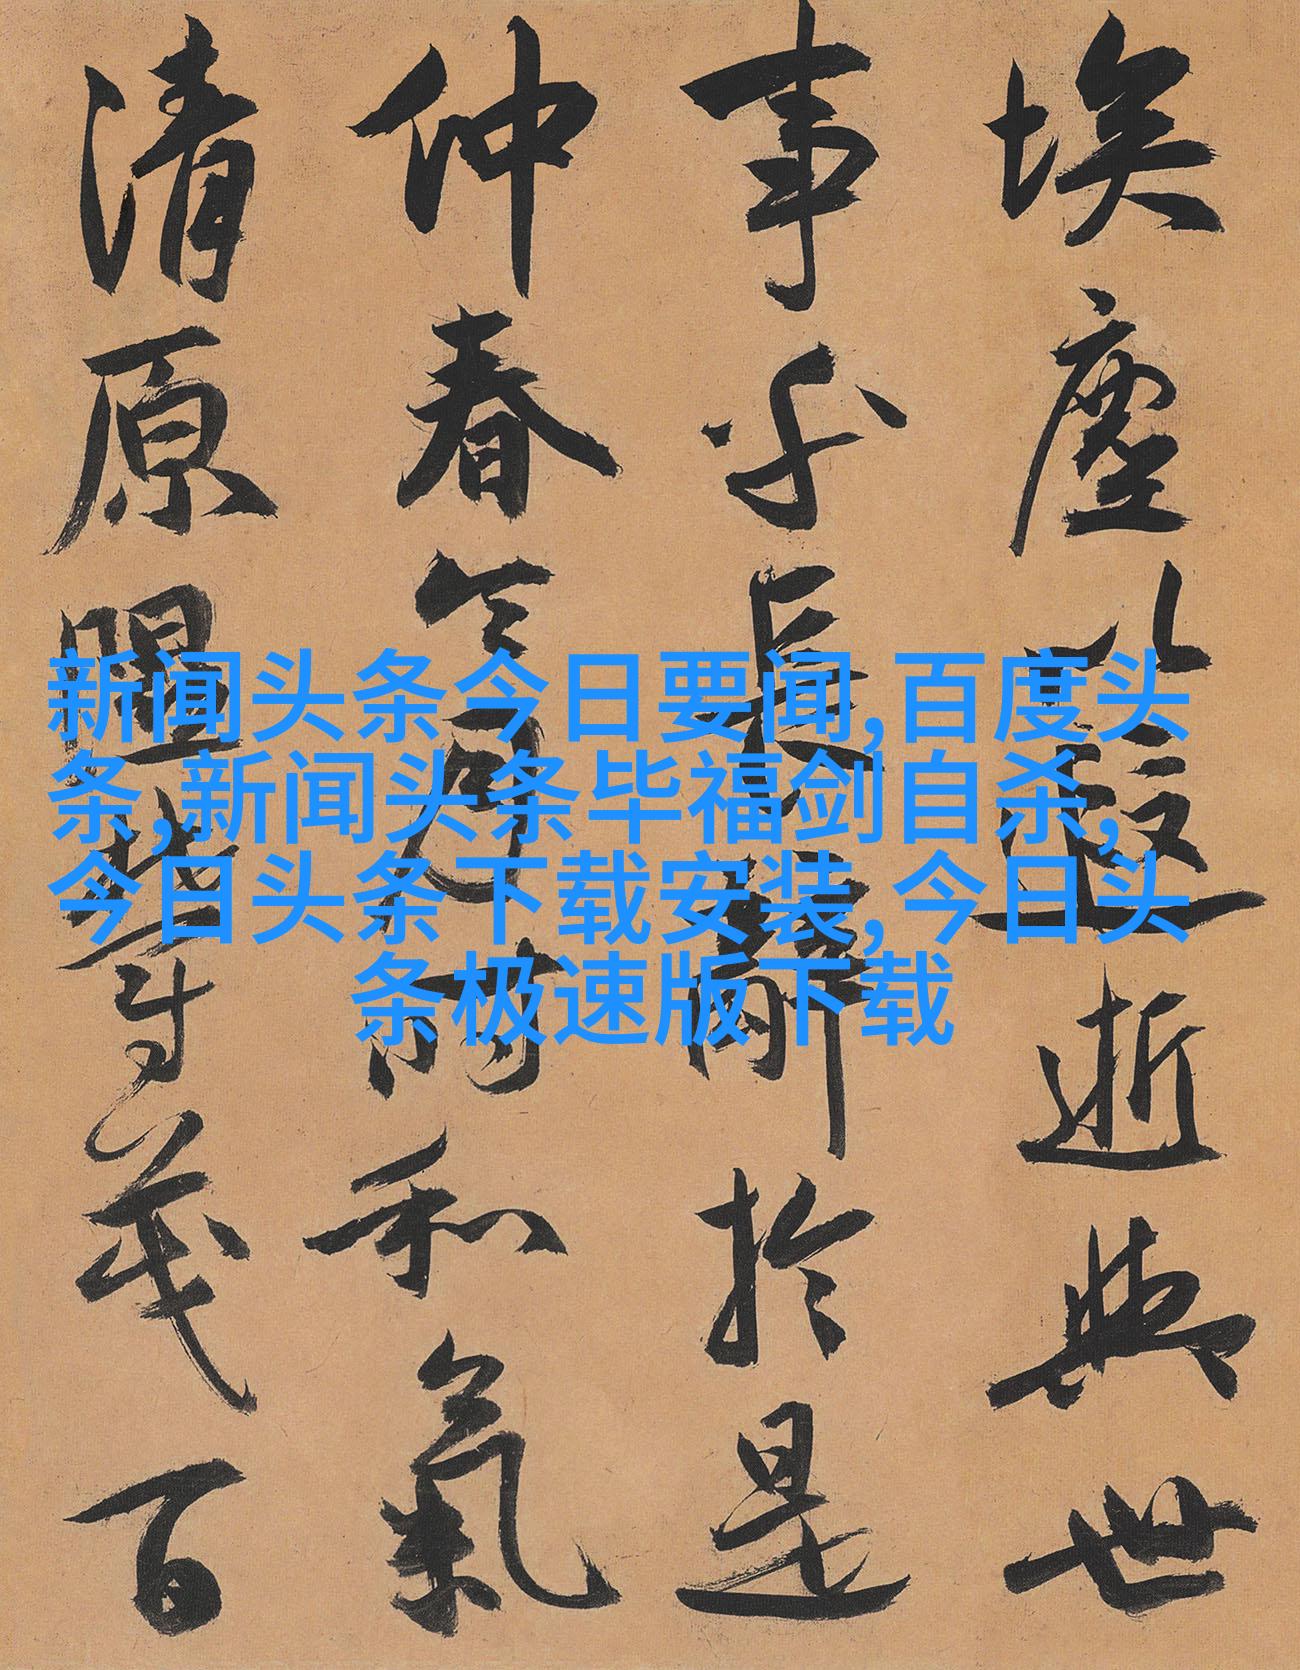 埃塵以遐逝與世
事乎長辭於是
仲春令月時和氣
清原隰鬱茂百
新闻头条今日要闻,百度头
条,新闻头条毕福剑自杀,
今日头条下载安装,今日头
条极速版下载